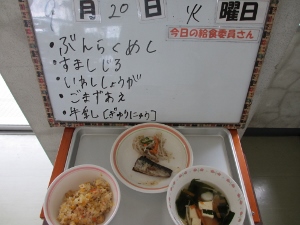 月20日 火 曜日
今日の給食委員さん
・ぶんらくめし
・すましじる
・いわししょうが
・ごまずあえ
・牛乳[ぎゅうにゅう]